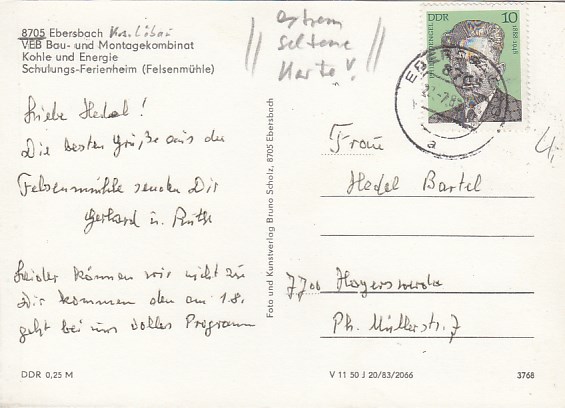 8705 Ebersbach Kr. Löbau
VEB Bau- und Montagekombinat
Kohle und Energie
Schulungs-Ferienheim (Felsenmühle)
extrem
seltene
Karte!
DDR 10
1888-1948
8705
a
4,-
Liebe Hedel!
Die besten Grüße aus der
Felsenmühle senden Dir
Gerhard u. Ruth
Leider können wir nicht zu
Dir kommen denn am 1.8.
geht bei uns volles Programm
Foto und Kunstverlag Bruno Scholz, 8705 Ebersbach
Frau
Hedel Bartel
7700 Hoyerswerda
Ph. Müllerstr. 7
DDR 0,25 M
V 11 50 J 20/83/2066
3768